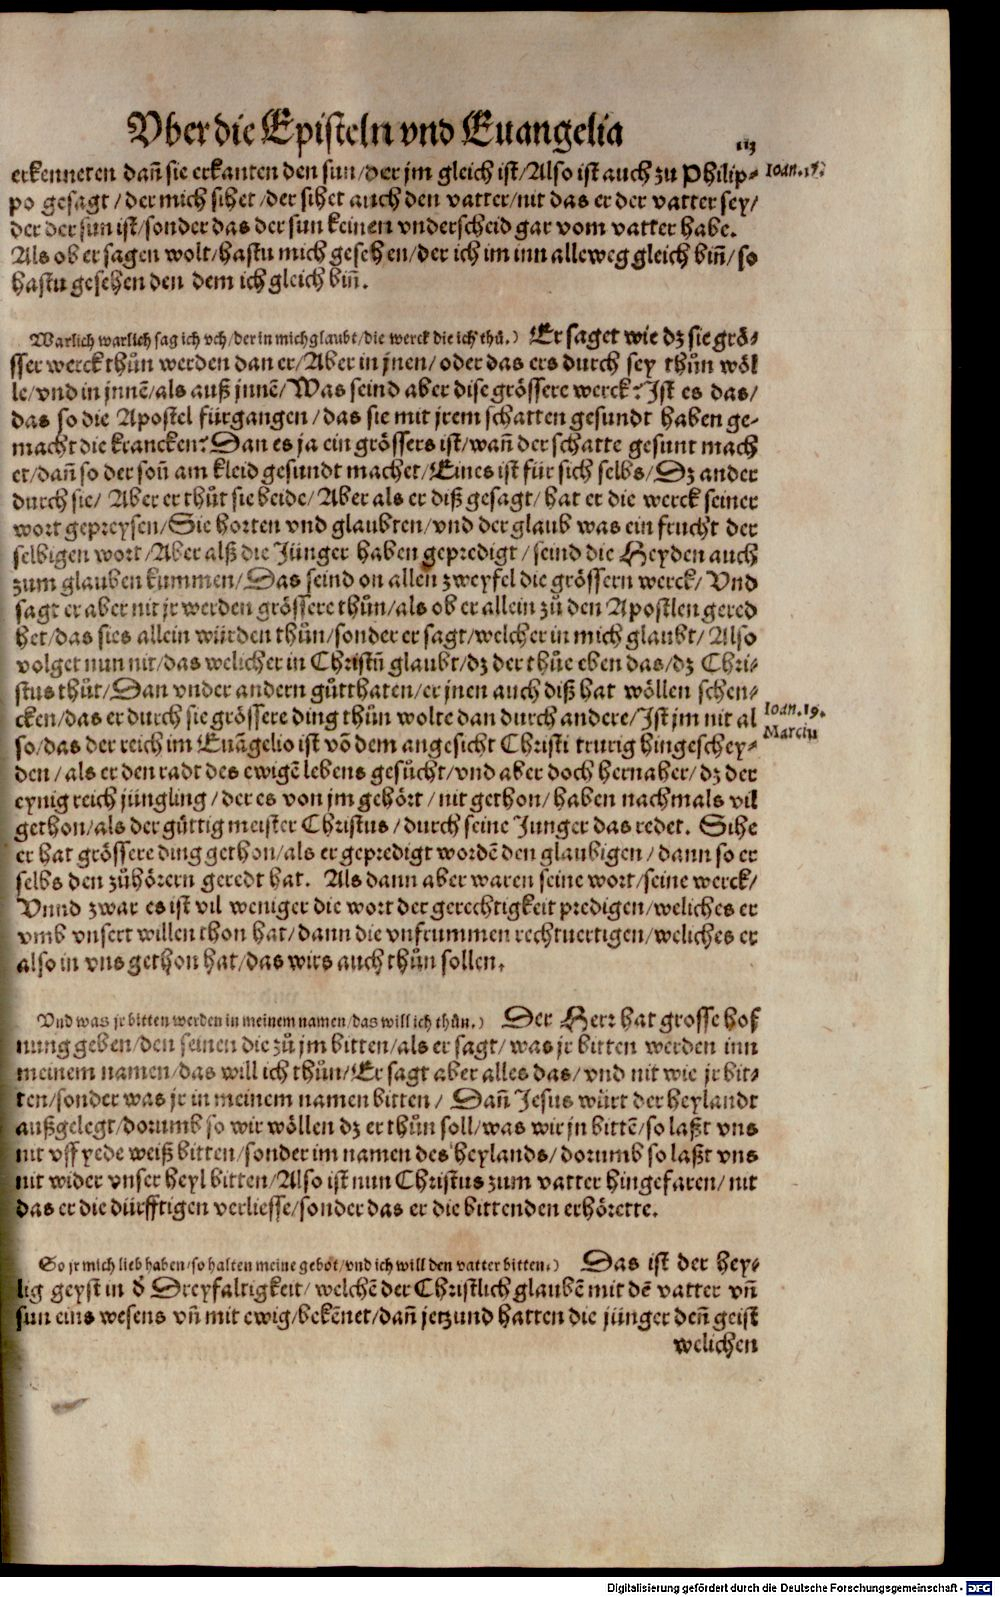 Vber die Episteln vnd Euangelia
erkenneten dañ sie erkanten den sun/der jm gleich ist/Also ist auch zu Philip-
po gesagt/der mich sihet/der sihet auch den vatter/nit das er der vatter sey/
der der sun ist/sonder das der sun keinen vnderscheid gar vom vatter habe.
Als ob er sagen wolt/hastu mich gesehen/der ich im inn alleweg gleich biñ/so
hastu gesehen den dem ich gleich biñ.
Warlich warlich sag ich vch/der in mich glaubt/die werck die ich thů.) Er saget wie dz sie grö-
sser werck thůn werden dan er/Aber in jnen/oder das ers durch sey thůn wöl
le/vnd in jnnẽ/als auß jnnẽ/Was seind aber dise grössere werck? Ist es das/
das so die Apostel fürgangen/das sie mit jrem schatten gesundt haben ge-
macht die krancken? Dan es ja ein grössers ist/wañ der schatte gesunt mach
et/dañ so der soñ am kleid gesundt machet/Eines ist für sich selbs/Dz ander
durch sie/Aber er thůt sie beide/Aber als er diß gesagt/hat er die werck seiner
wort gepreysen/Sie horten vnd glaubten/vnd der glaub was ein frucht der
selbigen wort/Aber alß die Jünger haben gepredigt/seind die Heyden auch
zum glauben kummen/Das seind on allen zweyfel die grössern werck/Vnd
sagt er aber nit jr werden grössere thůn/als ob er allein zů den Apostlen gered
het/das sies allein würden thůn/sonder er sagt/welcher in mich glaubt/Also
volget nun nit/das welicher in Christũ glaubt/dz der thůe eben das/dz Chri-
stus thůt/Dan vnder andern gůtthaten/er jnen auch diß hat wöllen schen-
cken/das er durch sie grössere ding thůn wolte dan durch andere/Ist jm nit al
so/das der reich im Euãgelio ist võ dem angesicht Christi trurig hingeschey-
den/als er den radt des ewigẽ lebens gesůcht/vnd aber doch hernaher/dz der
eynig reich jüngling/der es von jm gehört/nit gethon/haben nachmals vil
gethon/als der gůttig meister Christus/durch seine Junger das redet. Sihe
er hat grössere ding gethon/als er gepredigt wordẽ den glaubigen/dann so er
selbs den zůhörern geredt hat. Als dann aber waren seine wort/seine werck/
Vnnd zwar es ist vil weniger die wort der gerechtigkeit predigen/weliches er
vmb vnsert willen thon hat/dann die vnfrummen rechtuertigen/weliches er
also in vns gethon hat/das wirs auch thůn sollen.
Vnd was jr bitten werden in meinem namen/das will ich thůn.) Der Herr hat grosse hof
nung geben/den seinen die zů jm bitten/als er sagt/was jr bitten werden inn
meinem namen/das will ich thůn/Er sagt aber alles das/vnd nit wie jr bit-
ten/sonder was jr in meinem namen bitten/Dañ Jesus würt der heylandt
außgelegt/dorumb so wir wöllen dz er thůn soll/was wir jn bittẽ/so laßt vns
nit vff yede weiß bitten/sonder im namen des heylands/dorumb so laßt vns
nit wider vnser heyl bitten/Also ist nun Christus zum vatter hingefaren/nit
das er die dürfftigen verliesse/sonder das er die bittenden erhörette.
So jr mich lieb haben/so halten meine gebot/vnd ich will den vatter bitten.) Das ist der hey-
lig geyst in ð Dreyfaltigkeit/welchẽ der Christlich glaubẽ mit dẽ vatter vñ
sun eins wesens vñ mit ewig/bekẽnet/dañ jetzund hatten die jünger deñ geist
welichen
Ioan.19.
Digitalisierung gefördert durch die Deutsche Forschungsgemeinschaft - DFG